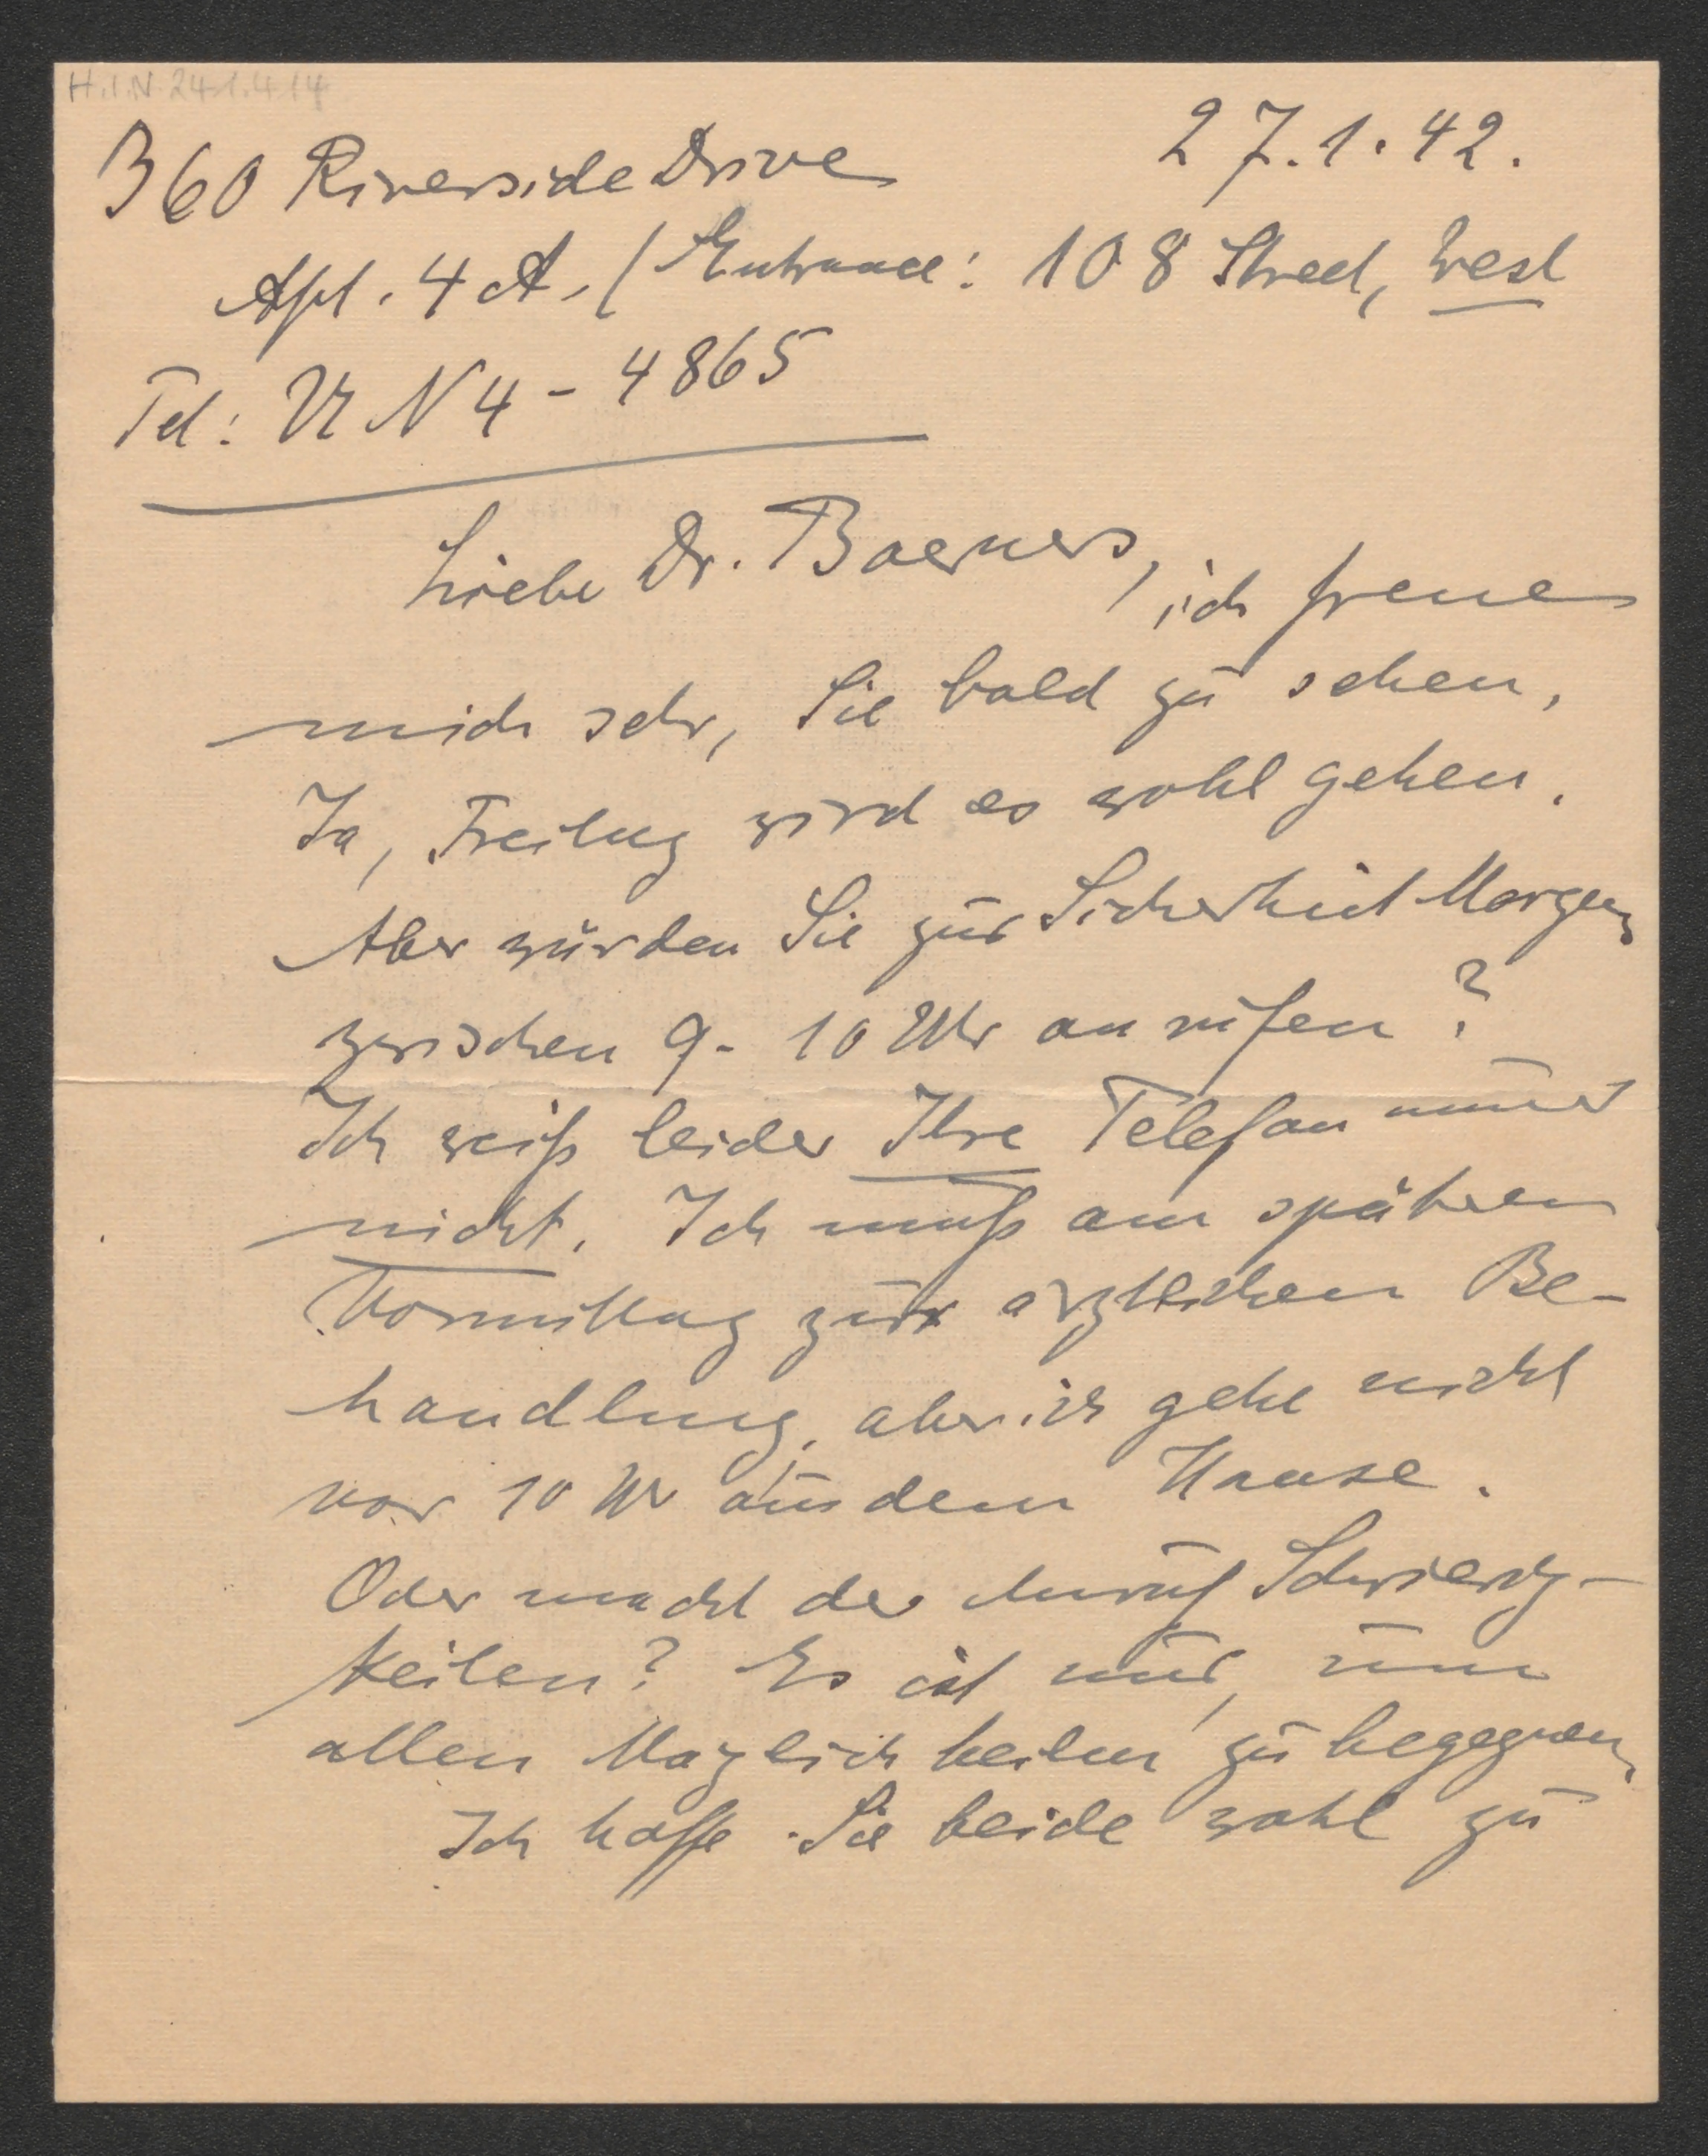 H.I.N. 241.414
360 Riverside Drive 27.1.42.
Apt. 4 A, (Entrance: 108 Street, West
Tel: UN 4 - 4865
Liebe Dr. Baerners, ich freue
mich sehr, Sie bald zu sehen,
Ja, Freitag wird es wohl gehen.
Aber würden Sie zur Sicherheit Morgen
zwischen 9 - 10 Uhr anrufen?
Ich weiß leider Ihre Telefon
nicht. Ich muß am späteren
Vormittag zur ärztlichen Be-
handlung, aber ich gehe nicht
vor 10 Uhr aus dem Hause.
Oder macht der Anruf Schwierig-
keiten? Es ist nur, um
allen Möglichkeiten zu begegnen,
Ich hoffe Sie beide wohl zu